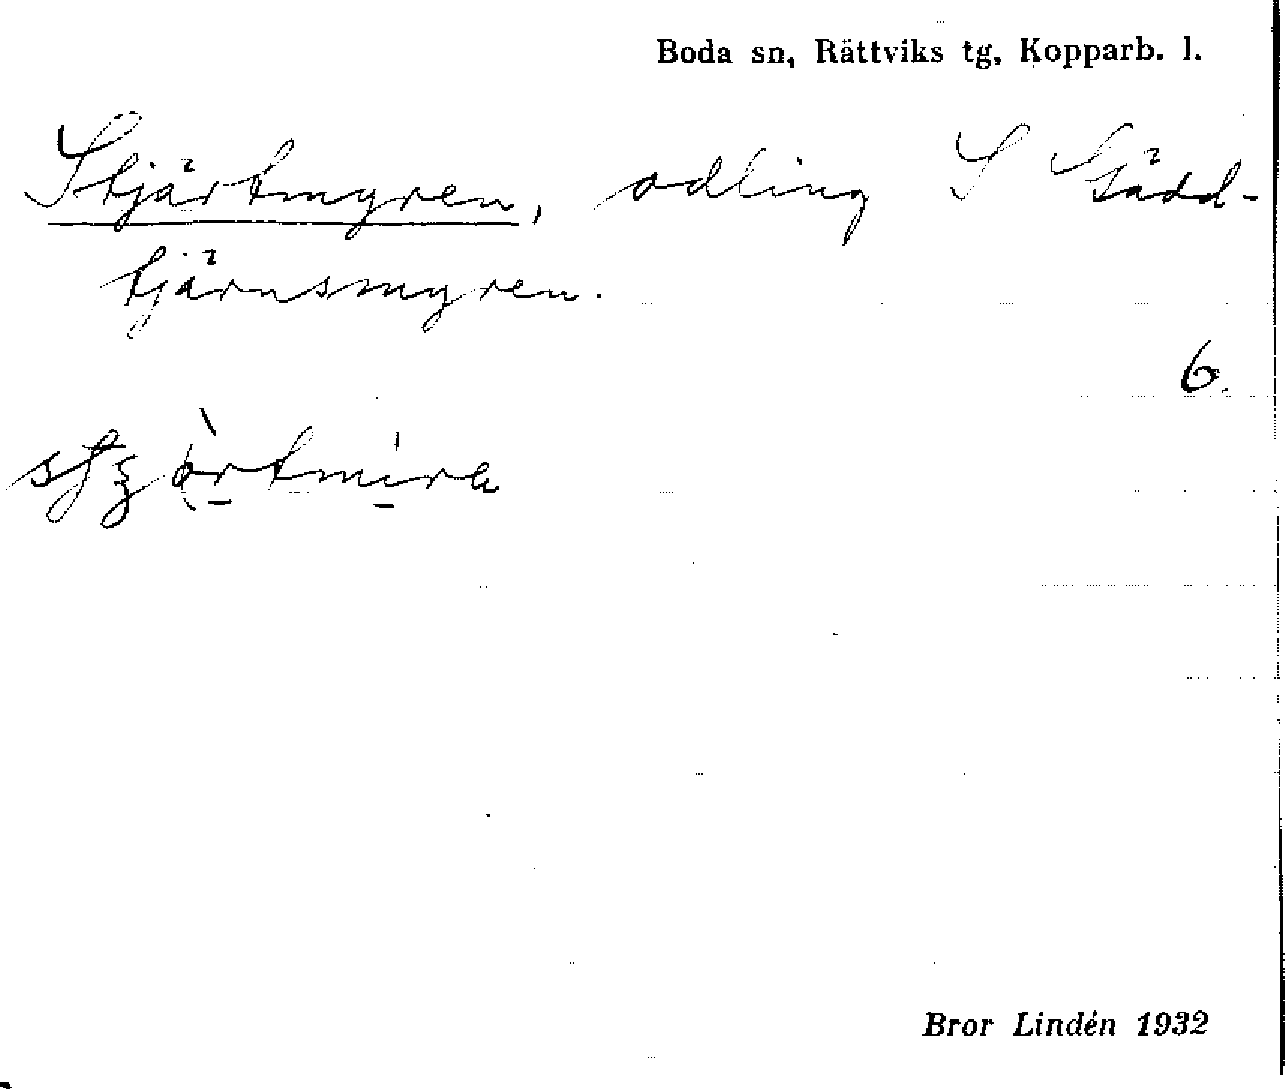 Boda sn, Rättviks tg, Kopparb. l.
Stjärtmyren, odling S Gädd-
tjärnsmyren.
6.
Bror Lindén 1932